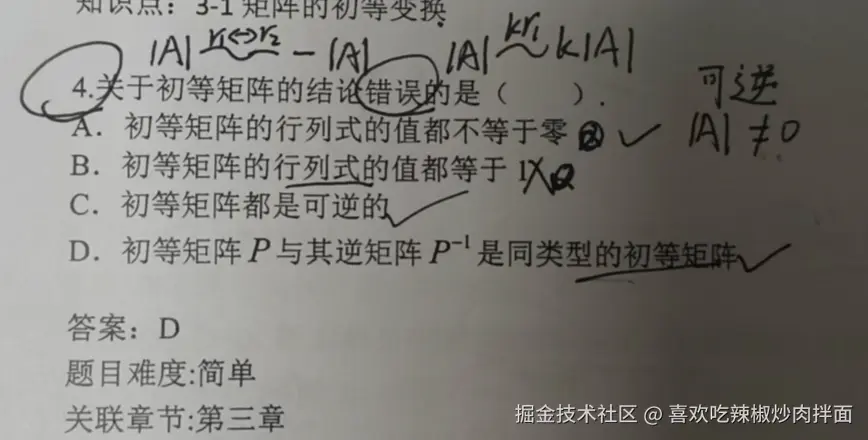 知识点：3-1 矩阵的初等变换
|A| r₁↔r₂ ~ -|A| |A| kr₁ ~ k|A|
4.关于初等矩阵的结论错误的是（ ）.
可逆
|A| ≠0
A．初等矩阵的行列式的值都不等于零 ✓
B．初等矩阵的行列式的值都等于 1 X
C．初等矩阵都是可逆的 ✓
D．初等矩阵 P 与其逆矩阵 P⁻¹ 是同类型的初等矩阵 ✓
答案：D
题目难度:简单
关联章节:第三章
掘金技术社区 @ 喜欢吃辣椒炒肉拌面